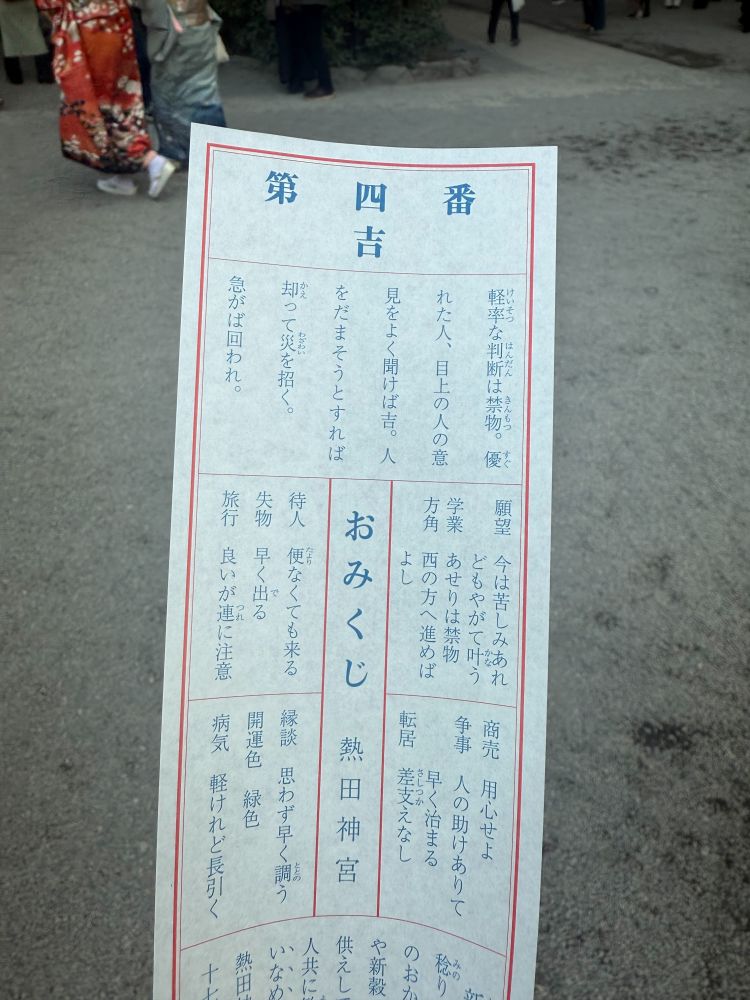 第四番
吉
軽率な判断は禁物。優
れた人、目上の人の意
見をよく聞けば吉。人
をだまそうとすれば
却って災を招く。
急がば回われ。
願望 今は苦しみあれ
どもやがて叶う
学業 あせりは禁物
方角 西の方へ進めば
よし
商売 用心せよ
争事 人の助けありて
早く治まる
転居 差支えなし
おみくじ 熱田神宮
待人 便なくても来る
失物 早く出る
旅行 良いが連に注意
縁談 思わず早く調う
開運色 緑色
病気 軽けれど長引く
稔り
のおか
や新穀
供えして
人共に
いなめ
熱田
十七